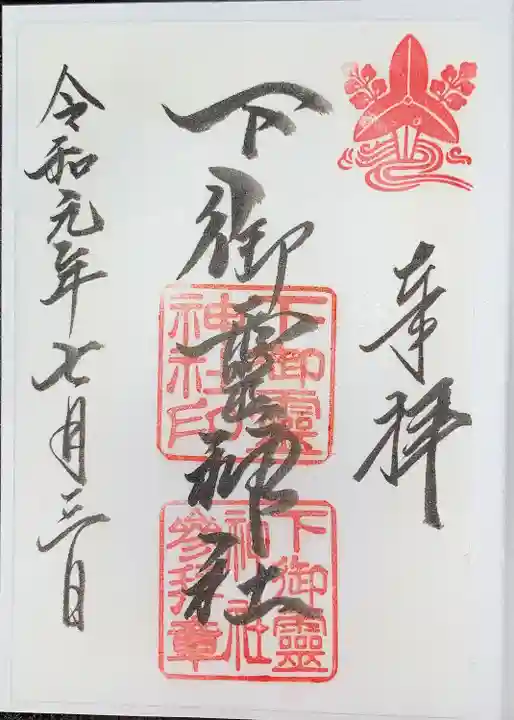 奉拝
下御霊神社
下御靈
神社印
下御靈
神社
参拝章
令和元年七月三日